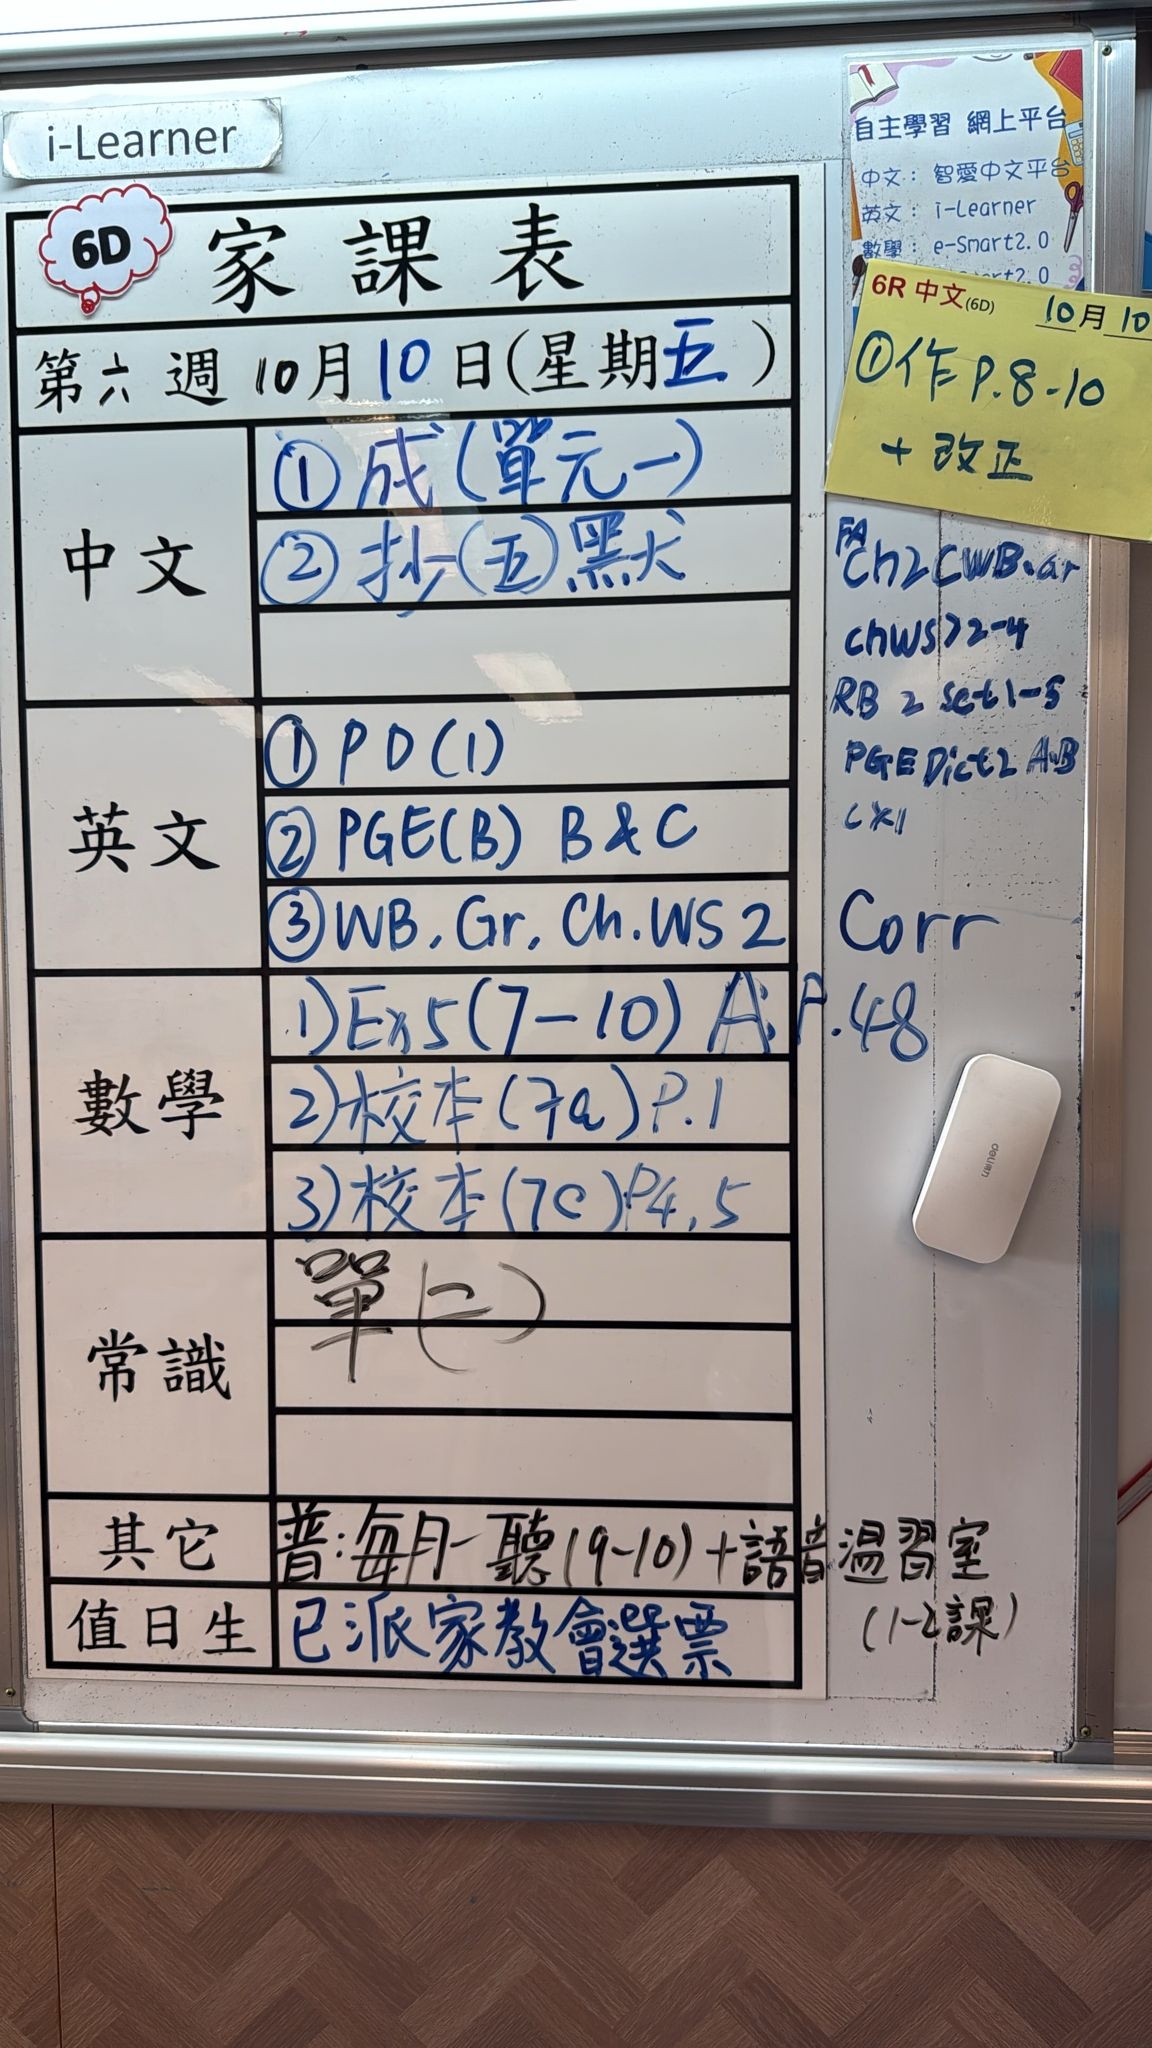 i-Learner
自主學習 網上平台
中文：智愛中文平台
英文：i-Learner
數學：e-Smart2.0
6D 家課表
第六週10月10日(星期五)
6R 中文(6D) 10月10
①作P.8-10
+改正
中文
①成(單元一)
②抄(五)默
英文
①PD(1)
②PGE(B) B&C
③WB, Gr, Ch.WS 2 Corr
Ch2 CWB.Gr
ChWS>2-4
RB 2 set 1-5
PGE Dict2 A.B
數學
1)Ex5(7-10) A:P.48
2)校本(7a)P.1
3)校本(7c)P4,5
deli
常識
單(二)
其它
普:每月一聽(9-10)+語音溫習室
(1-2課)
值日生
已派家教會選票